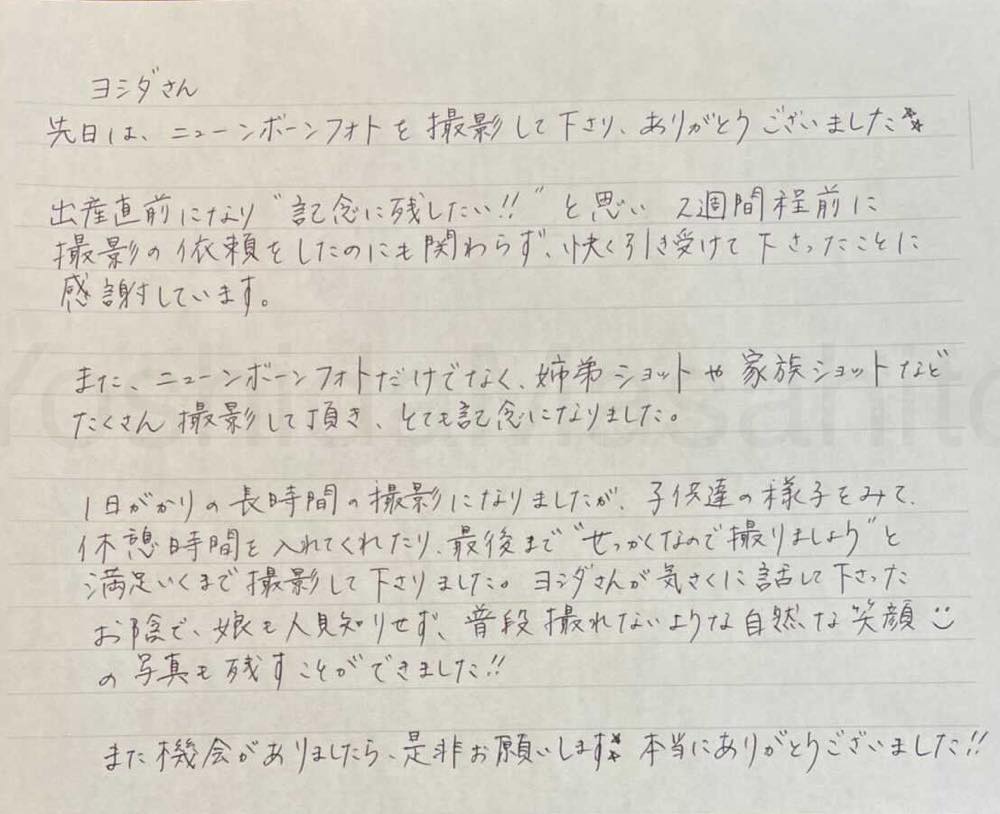 ヨシダさん
先日は、ニューンボーンフォトを撮影して下さり、ありがとうございました
出産直前になり“記念に残したい!!”と思い 2週間程前に
撮影の依頼をしたのにも関わらず、快く引き受けて下さったことに
感謝しています。
また、ニューンボーンフォトだけでなく、姉弟ショットや家族ショットなど
たくさん撮影して頂き、とても記念になりました。
1日がかりの長時間の撮影になりましたが、子供達の様子をみて、
休憩時間を入れてくれたり、最後まで“せっかくなので撮りましょう”と
満足いくまで撮影して下さりました。ヨシダさんが気さくに話して下さった
お陰で、娘も人見知りせず、普段撮れないような自然な笑顔
の写真も残すことができました!!
また機会がありましたら、是非お願いします 本当にありがとうございました!!